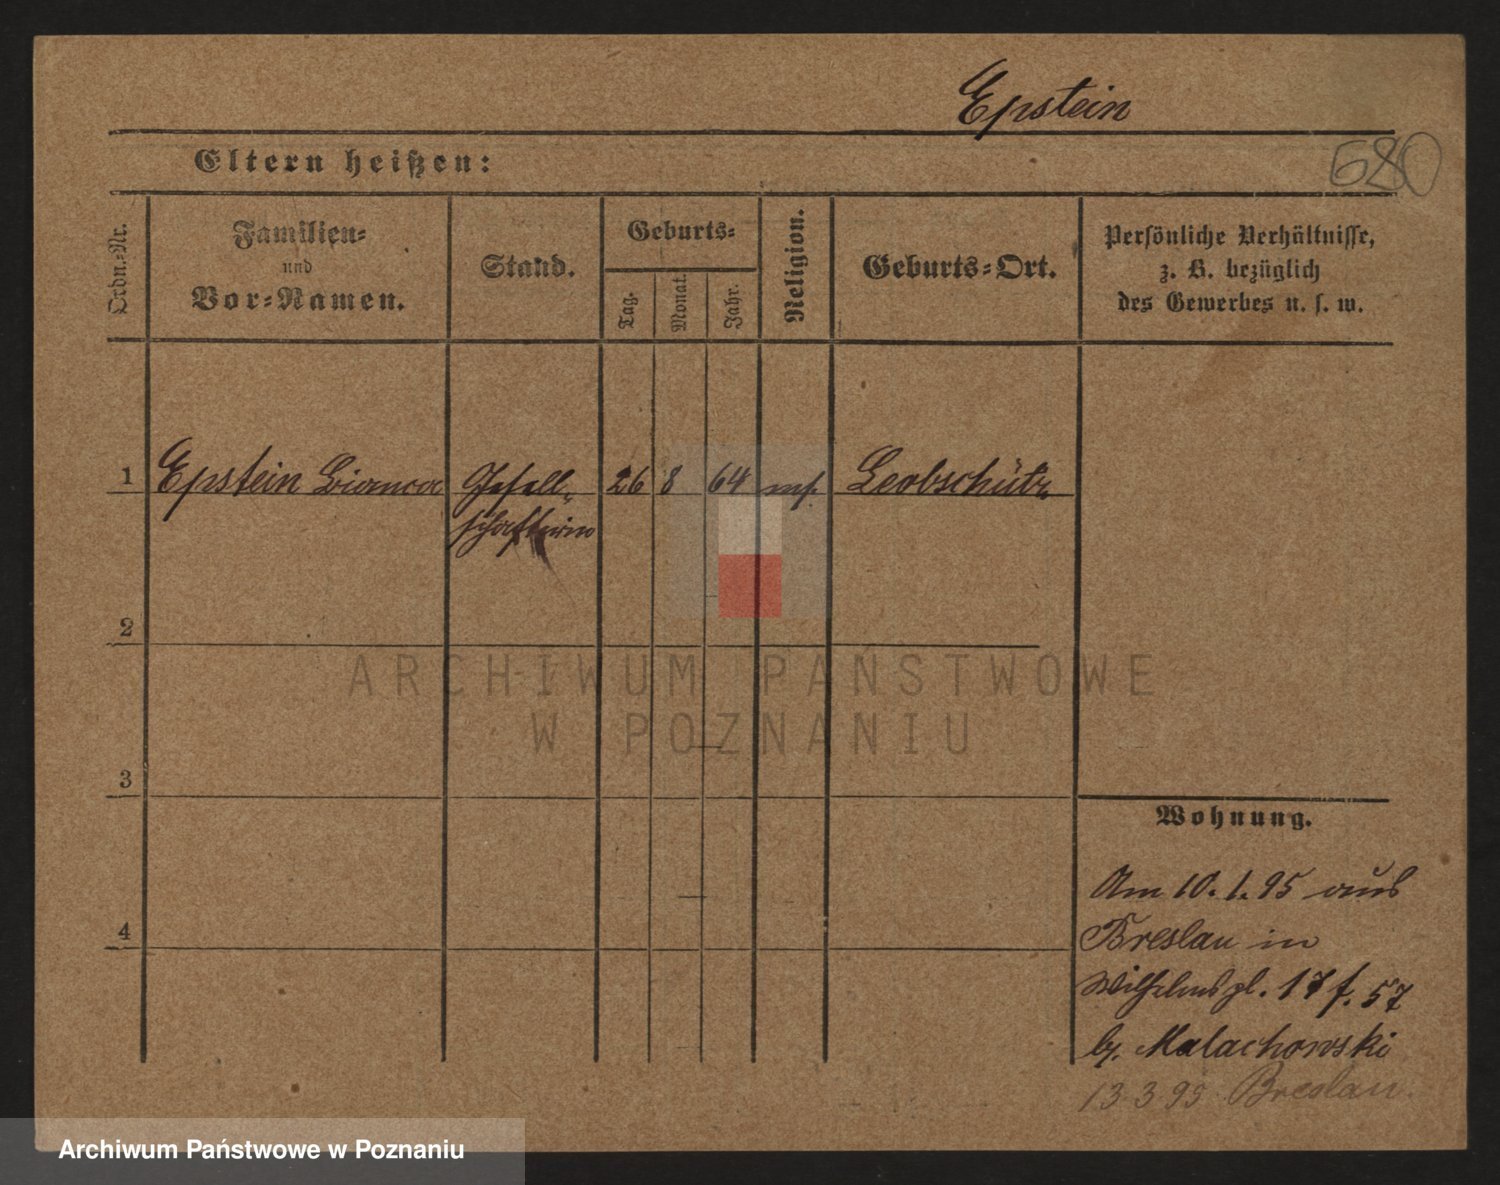 Epstein
680
Eltern heißen:
Ordn.-Nr.
Familien-
und
Vor-Namen.
Stand.
Geburts-
Tag.
Monat.
Jahr.
Religion.
Geburts-Ort.
Persönliche Verhältnisse,
z. B. bezüglich
des Gewerbes u. s. w.
1 Epstein Bianca Gesell- 26 8 64 mos. Leobschütz
schafterin
2
ARCHIWUM PAŃSTWOWE
W POZNANIU
3
Wohnung.
Am 10. 1. 95 aus
4
Breslau in
Wilhelmspl. 17 f. 57
b. Malachowski
13 3 95 Breslau.
Archiwum Państwowe w Poznaniu